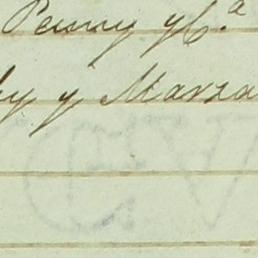 Penny y C.ª
y Marza